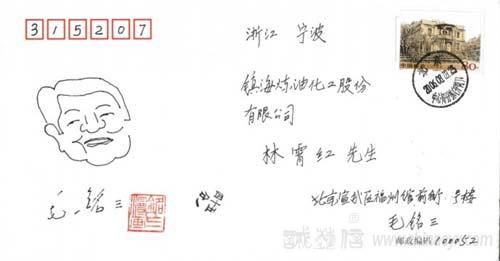 315207
浙江 宁波
镇海炼油化工股份
有限公司
林霄红 先生
北京宣武区福州馆前街 号楼
毛铭三
邮政编码 100052
毛铭三
80